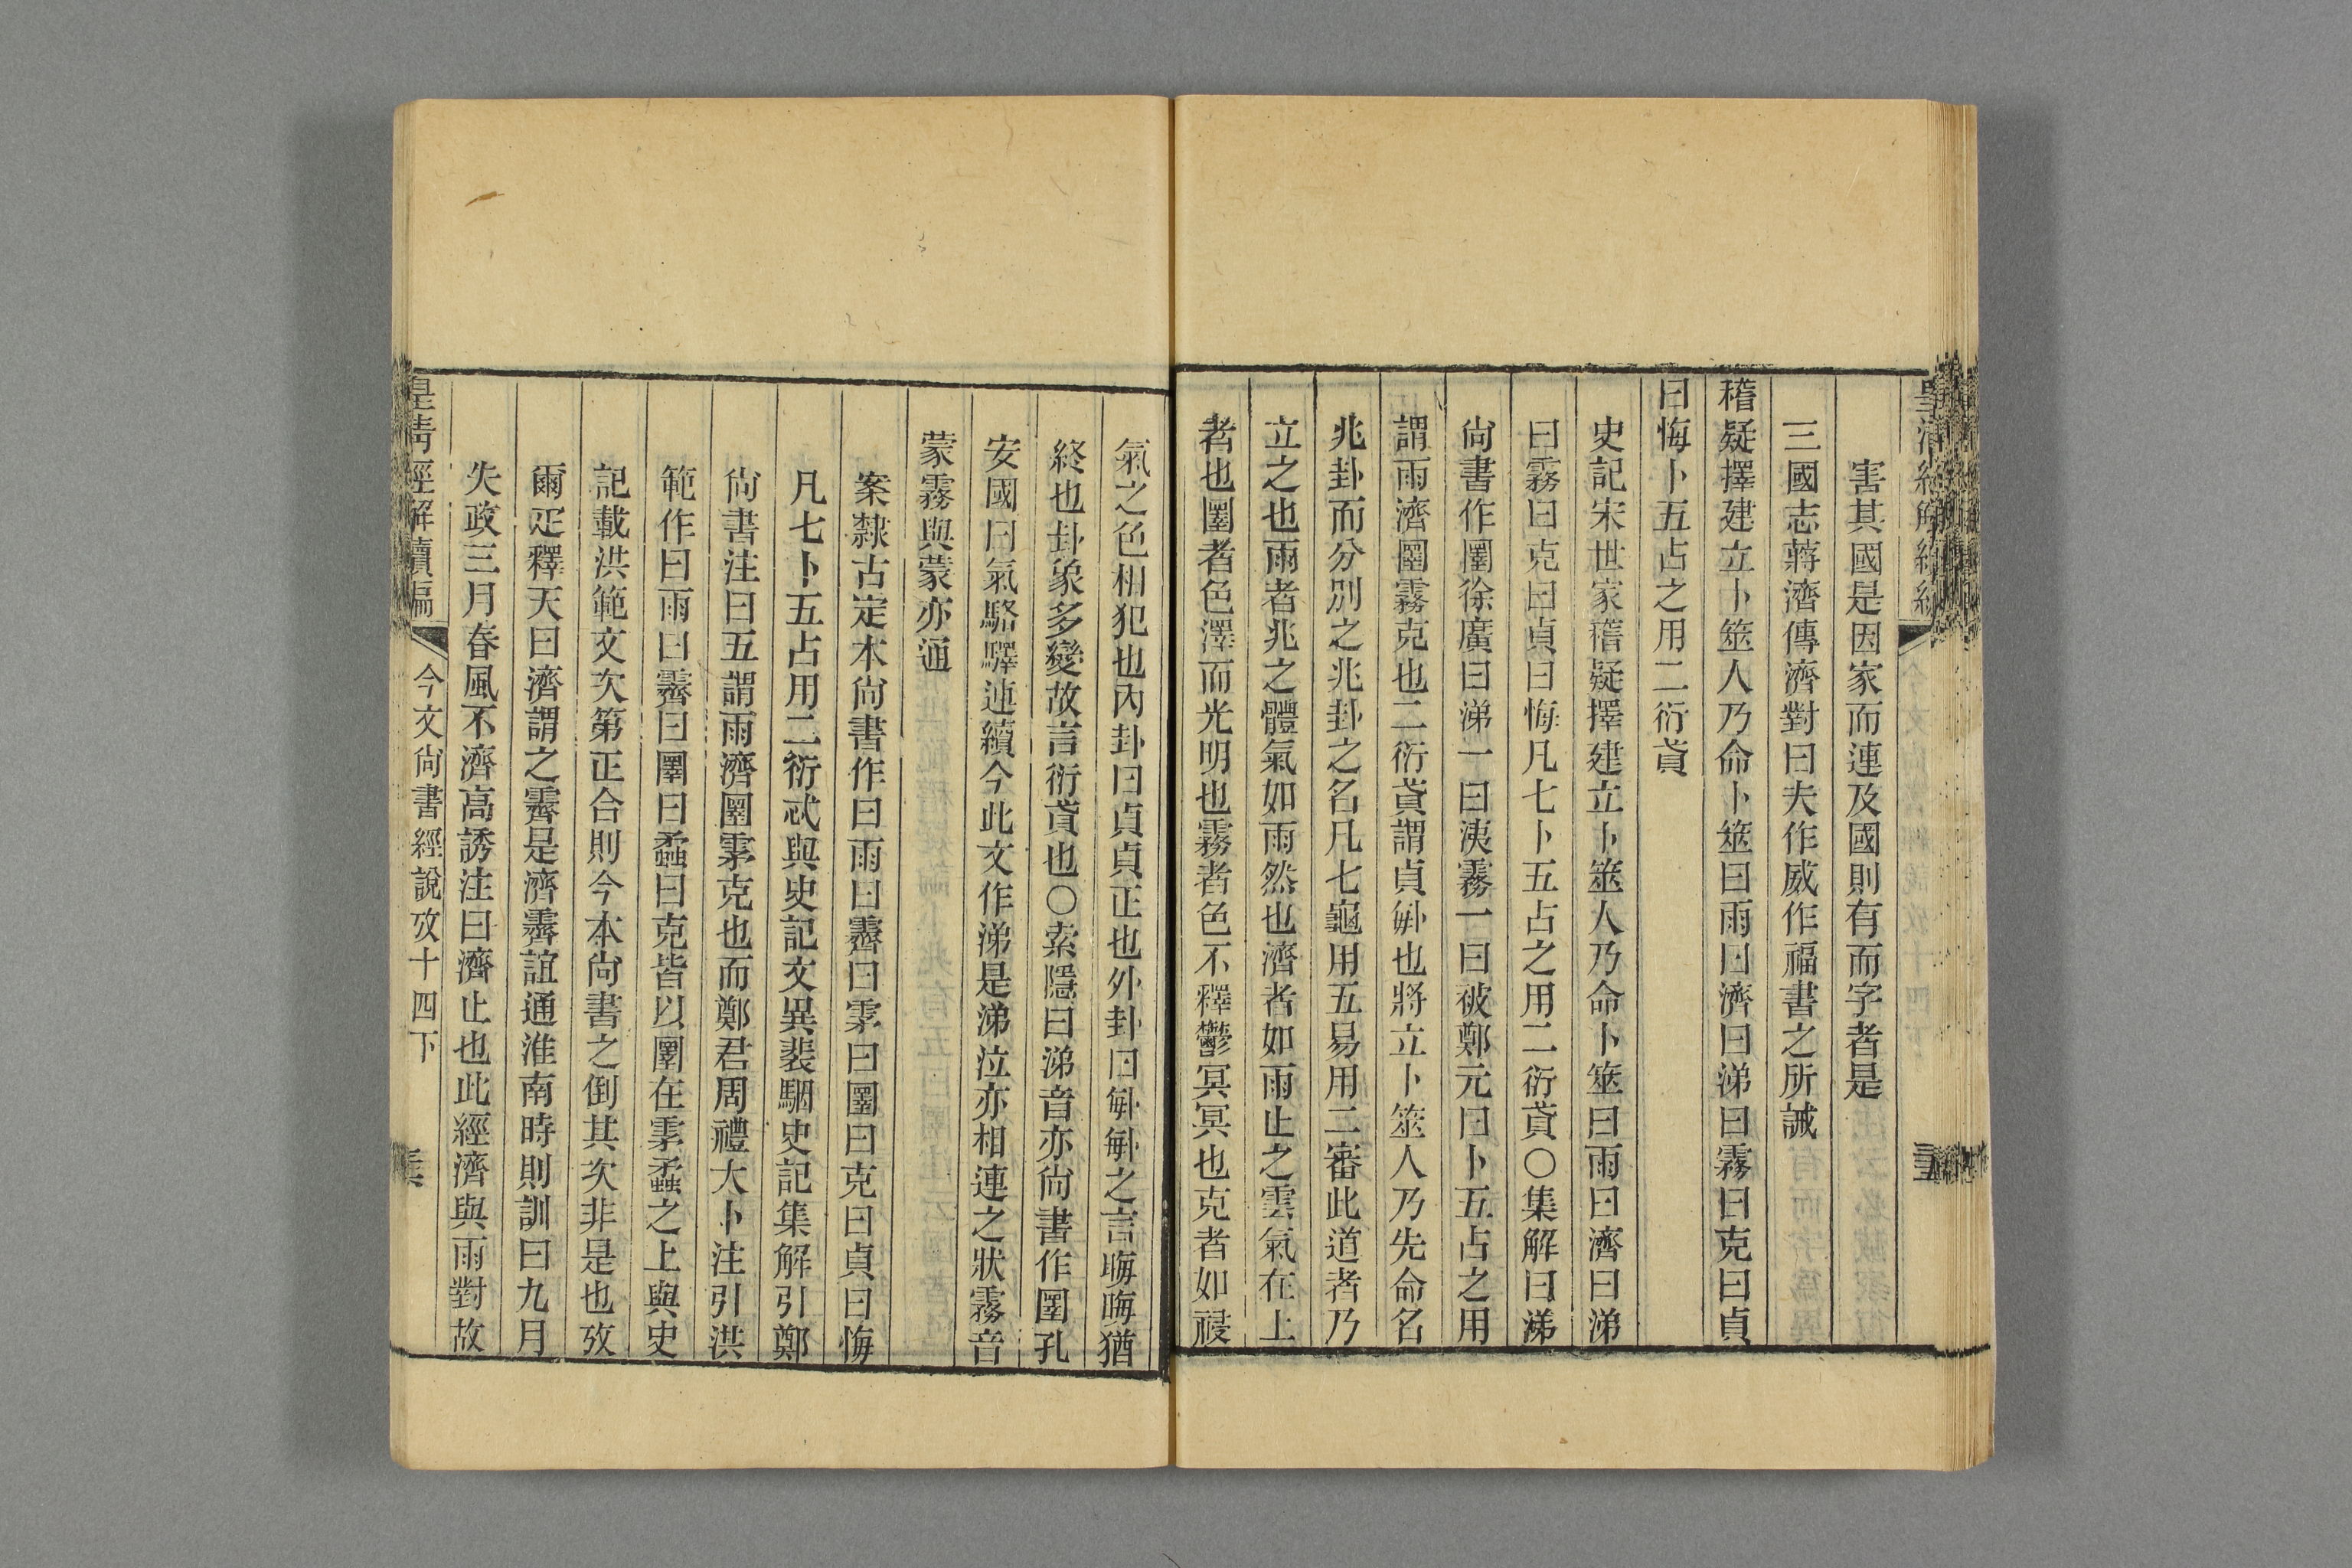 害其國是因家而連及國則有而字者是
三國志蔣濟傳濟對曰夫作威作福書之所誡
稽疑擇建立卜筮人乃命卜筮曰雨曰濟曰涕曰霧曰克曰貞
曰悔卜五占之用二衍貣
史記宋世家稽疑擇建立卜筮人乃命卜筮曰雨曰濟曰涕
曰霧曰克曰貞曰悔凡七卜五占之用二衍貣○集解曰涕
尙書作圛徐廣曰涕一曰洟霧一曰被鄭元曰卜五占之用
謂雨濟圛霧克也二衍貣謂貞𠧩也將立卜筮人乃先命名
兆卦而分別之兆卦之名凡七龜用五易用二審此道者乃
立之也雨者兆之體氣如雨然也濟者如雨止之雲氣在上
者也圛者色澤而光明也霧者色不釋鬱冥冥也克者如祲
氣之色相犯也內卦曰貞貞正也外卦曰𠧩𠧩之言晦晦猶
終也卦象多變故言衍貣也○索隱曰涕音亦尙書作圛孔
安國曰氣駱驛連續今此文作涕是涕泣亦相連之狀霧音
蒙霧與蒙亦通
案隸古定本尙書作曰雨曰霽曰雺曰圛曰克曰貞曰悔
凡七卜五占用二衍忒與史記文異裴駰史記集解引鄭
尙書注曰五謂雨濟圛雺克也而鄭君周禮大卜注引洪
範作曰雨曰霽曰圛曰蟊曰克皆以圛在雺蟊之上與史
記載洪範文次第正合則今本尙書之倒其次非是也攷
爾疋釋天曰濟謂之霽是濟霽誼通淮南時則訓曰九月
失政三月春風不濟高誘注曰濟止也此經濟與雨對故
皇清經解續編
今文尙書經說攷十四下